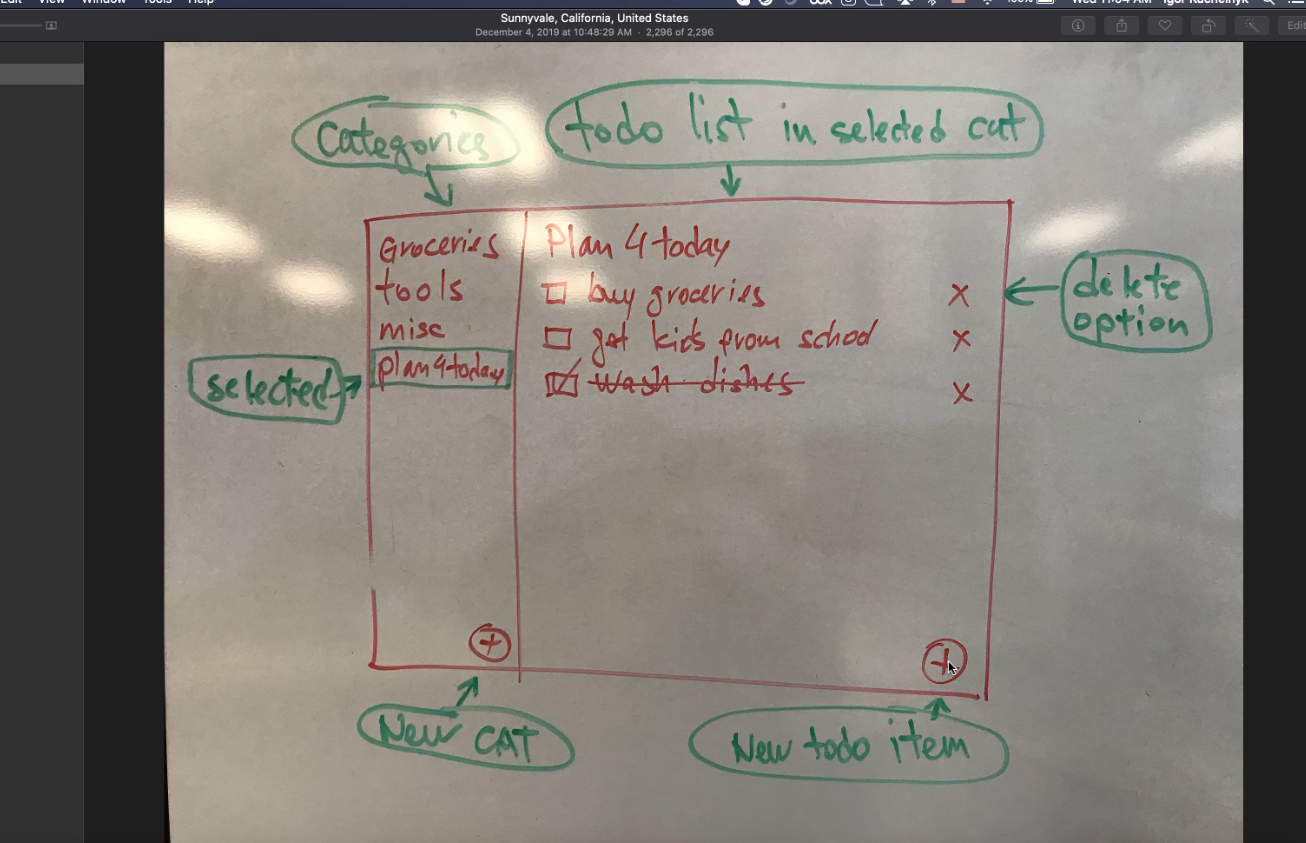 View
Window
Tools
Help
Sunnyvale, California, United States
December 4, 2019 at 10:48:29 AM · 2,296 of 2,296
Categories
todo list in selected cat
Groceries
tools
misc
plan4today
Plan 4 today
buy groceries X
get kids from school X
wash dishes X
selected
delete
option
+
+
New CAT
New todo item